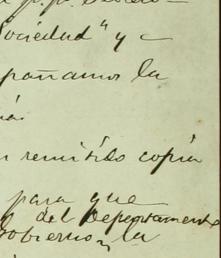 Sociedad" y
pañamos la
n remitido copia
para que
del Departamento
Gobierno, la